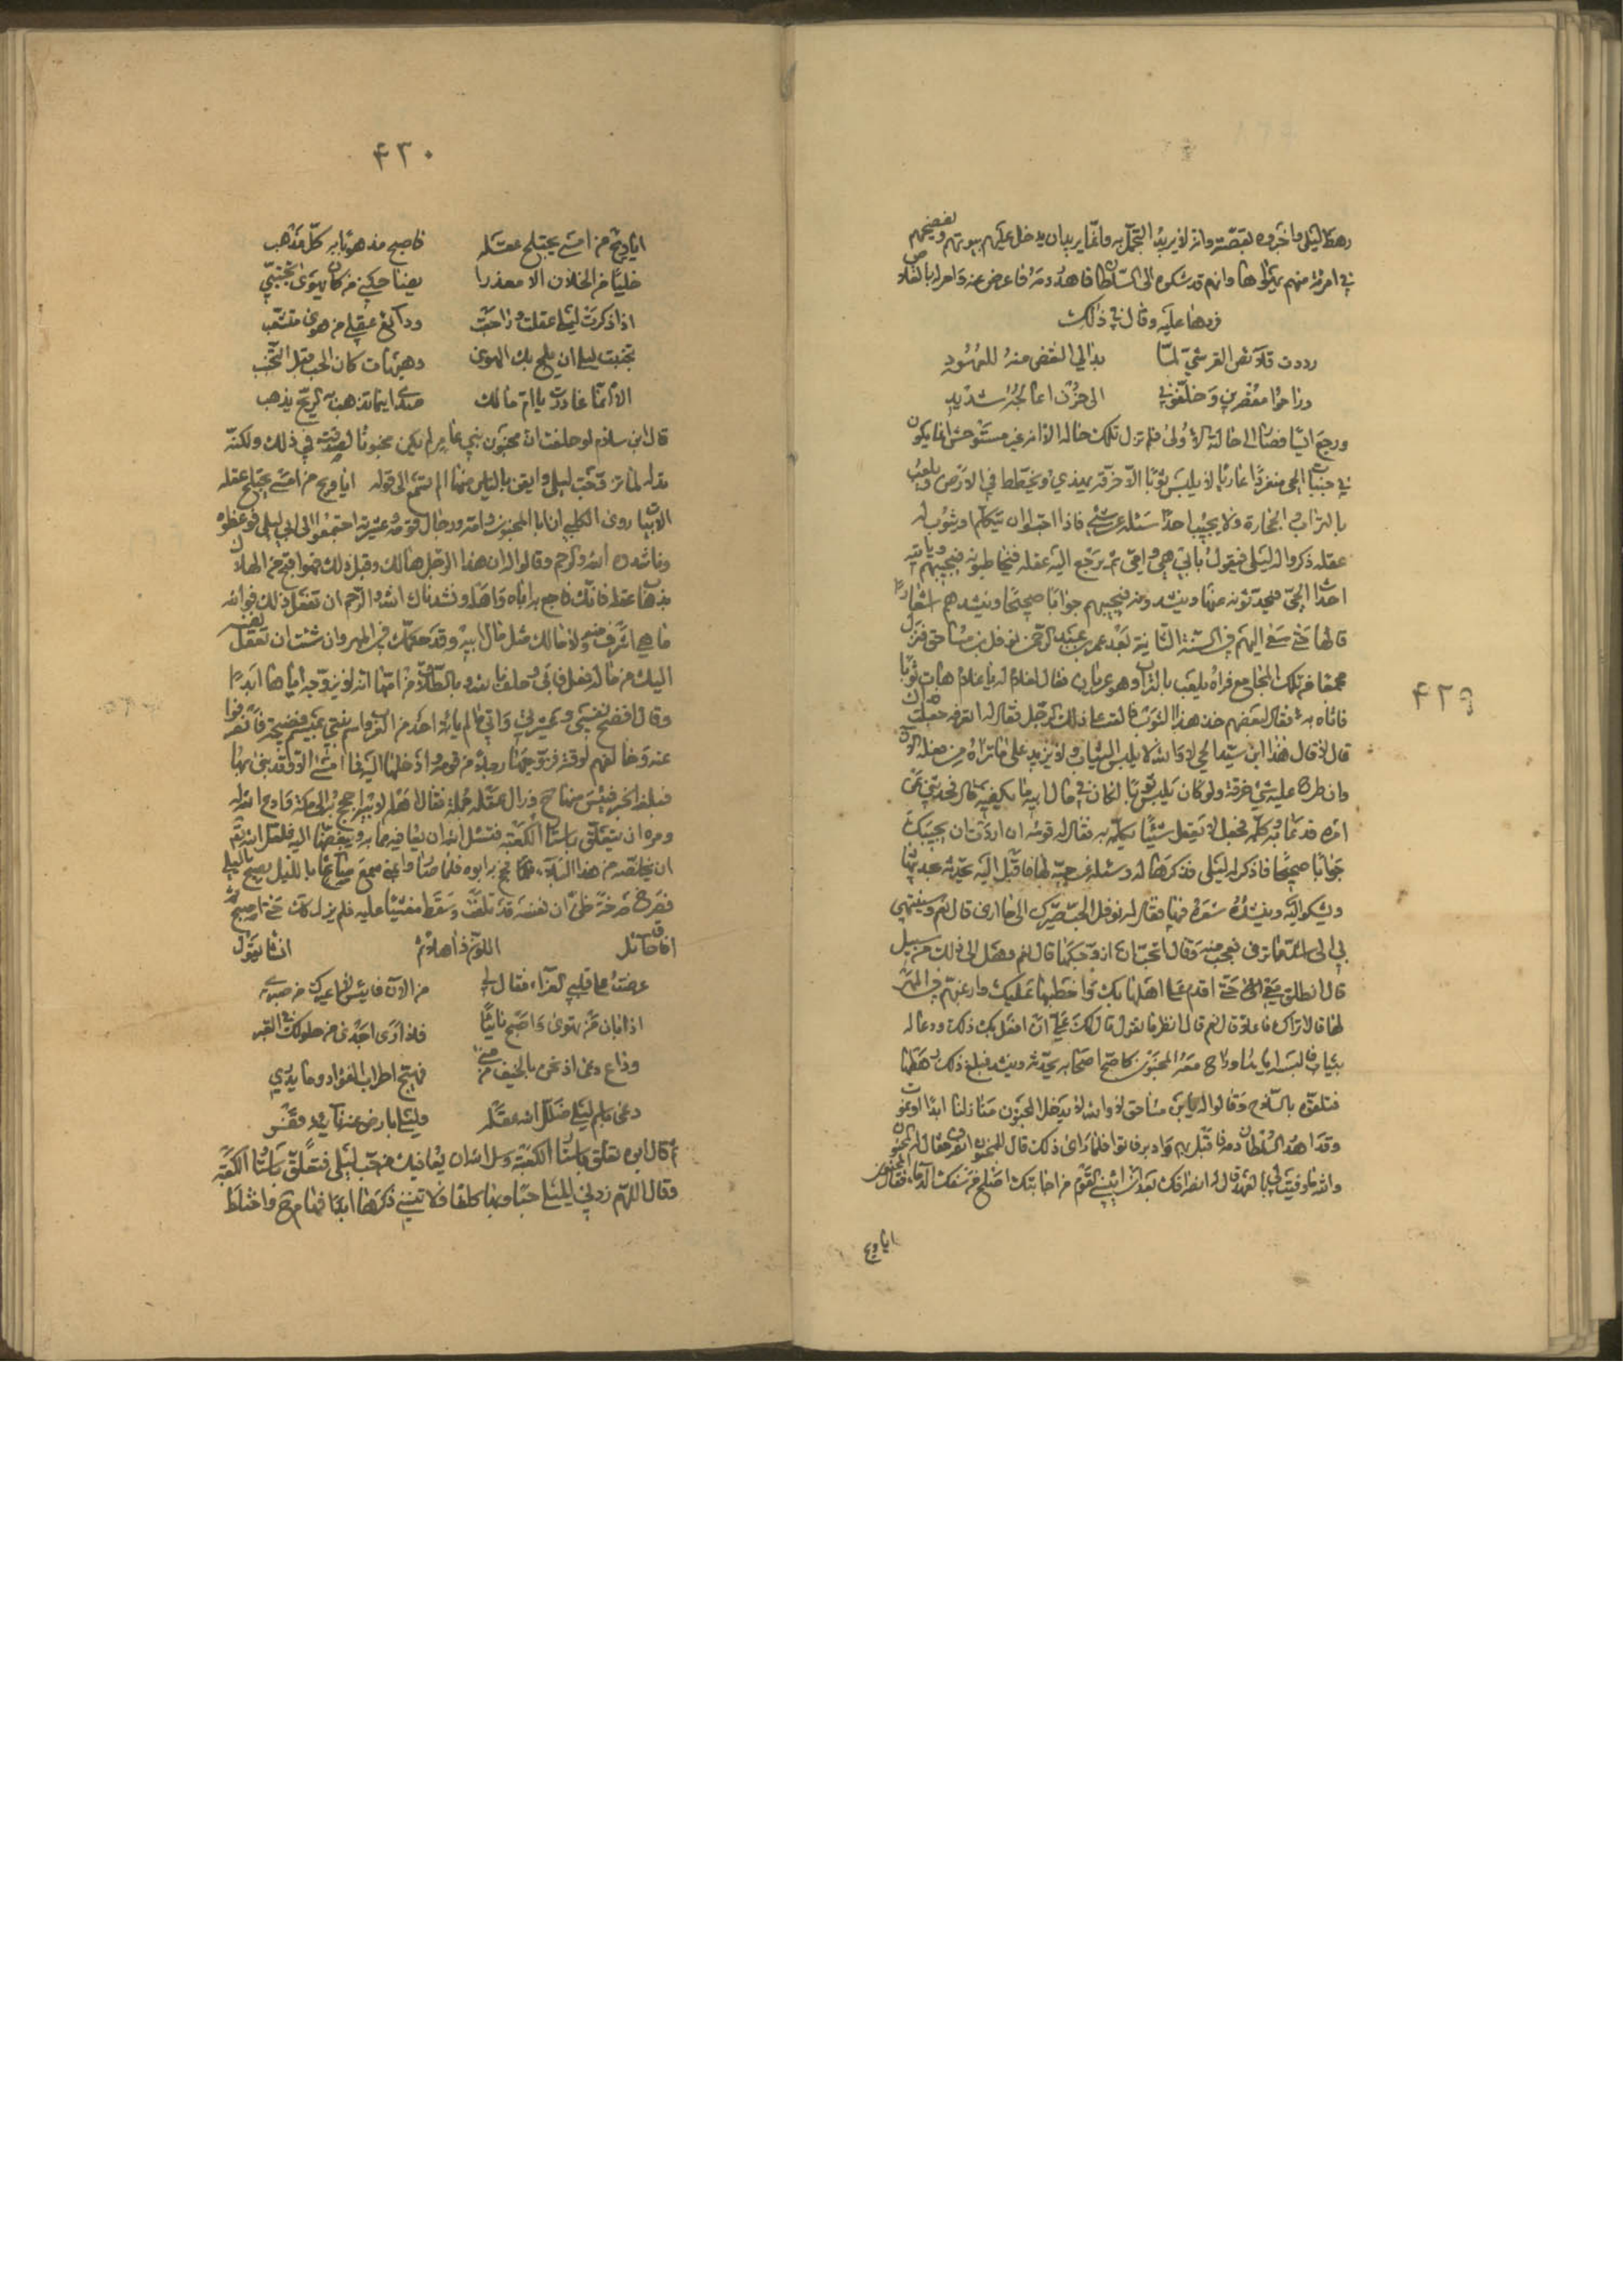 رهط ليلى واخبروه بقصته وانه لا يريد التجمل به وانما يريد ان يدخل عليهم بيوتهم ويفضحهم
في امرئة منهم يهواها وانهم قد شكوه الى السلطان فاهدر دمه فاعرض عنه وامر له بالقلاص
فردها عليه وقال في ذلك
رددت قلائص القرشي لما
بدا لي النقض منه للعهود
وراحوا مقصرين وخلفوني
الى حزن اعالجه شديد
ورجع ايسا فصار الى حالته الاولى فلم تزل تلك حاله الا انه غير مستوحش انما يكون
في جنبات الحي منفردا عاريا لا يلبس ثوبا الا خرقه ويهذي ويخطط في الارض ويلعب
بالتراب والحجارة ولا يجيب احدا سئله عن شئ فاذا احبوا ان يتكلم او يثوب له
عقله ذكروا له ليلى فيقول بابي هي وامي ثم يرجع اليه عقله فيخاطبونه فيجيبهم وياتيه
احداث الحي فيحدثونه عنها وينشدونه فيجيبهم جوابا صحيحا وينشدهم اشعارا
قالها حتى سعى اليهم في السنة الثانية بعد عمر بن عبد الرحمن نوفل بن مساحق فنزل
مجمعا من تلك المجامع فراه يلعب بالتراب وهو عريان فقال لغلام له يا غلام هات ثوبا
فاتاه به فقال لبعضهم خذ هذا الثوب فالقه على ذلك الرجل فقال له اتعرفه جعلت فداك
قال لا قال هذا ابن سيد الحي لا والله لا يلبس الثياب ولا يزيد على ما تراه من فعله الان
وان طرح عليه شئ خرقه ولو كان يلبس ثوبا لكان في مال ابيه ما يكفيه قال فحدثني عن
امره فدعا به وكلمه فجعل لا يعقل شيئا يكلمه به فقال له قومه ان اردت ان يجيبك
جوابا صحيحا فاذكر له ليلى فذكرها له وسئله عن حبه لها فاقبل اليه يحدثه عن حبه لها
ويشكو اليه وينشده شعره فيها فقال له نوفل الحب صيرك الى ما ارى قال نعم وسينتهي
بي الى اشد مما ترى فعجب منه وقال اتحب ان ازوجكها قال نعم وهل الى ذلك من سبيل
قال انطلق معي حتى اقدم على اهلها بك واخطبها عليك وارغبهم في المهر
لها قال اتراك فاعلا قال نعم قال انظر ما تقول قال لك علي ان افعل بك ذلك ودعا له
بثياب فالبسه اياها وراح معه المجنون كاصح اصحابه يحدثه وينشد فبلغ ذلك رهطها
فتلقوه بالسلاح وقالوا له يا بن مساحق لا والله لا يدخل المجنون منازلنا ابدا او نموت
وقد اهدر السلطان دمه فاقبل بهم وادبر فابوا فلما راى ذلك قال للمجنون انصرف فقال له المجنون
والله ما وفيت لي بالعهد قال له انصرافك بعد ان ايسني القوم من اجابتك اصلح من سفك الدماء فقال المجنون
ايا ويح
۴۲۹
۴۳۰
ايا ويح من امسى يختلج عقله
فاصبح مذهوبا به كل مذهب
خليا من الخلان الا معذرا
يضاحكني من كان يهوى تجنبي
اذا ذكرت ليلى عقلت وراجعت
روائع عقلي من هوى متشعب
تجنبت ليلى ان يلج بك الهوى
وهيهات كان الحب قبل التجنب
الا انما غادرت يا ام مالك
صدى اينما تذهب به الريح يذهب
قال ابن سلام لو حلفت ان مجنون بني عامر لم يكن مجنونا لصدقت في ذلك ولكنه
الابيات روى الكلبي ان ابا المجنون وامه ورجال قومه وعشيرته اجتمعوا الى ابي ليلى فوعظوه
وناشدوه الله والرحم وقالوا له ان هذا الرجل هالك وقبل ذلك فهو اقبح من الهلاك
بذهاب عقله فانك فاجع به اباه واهله ونشدناك الله والرحم ان تفعل ذلك فوالله
ما هي اشرف منه ولا لك مثل مال ابيه وقد حكمك في المهر وان شئت ان يخلع نفسه
اليك من ماله فعل فابى وحلف بالله وبالطلاق من امها انه لا يزوجه اياها ابدا
وقال افضح نفسي وعشيرتي واتي ما لم ياته احد من العرب واسم ابنتي بميسم فضيحة فانصرفوا
عنه وخالفهم لوقته فزوجها رجلا من قومه وادخلها اليه فما امسى الا وقد بنى بها
فبلغه الخبر فيئس منها ح وزال عقله جملة فقال اهله لابيه احجج به الى مكة وادع الله له
ومره ان يتعلق باستار الكعبة فيسئل الله ان يعافيه مما به ويبغضها اليه فلعل الله
ان يخلصه من هذا البلاء فحج به ابوه فلما صاروا بمنى سمع صائحا بالليل يصيح يا ليلى
فصرخ صرخة ظن ان نفسه قد تلفت وسقط مغشيا عليه فلم يزل كك حتى اصبح ثم
افاق حائل
اللون ذاهلا
انشا يقول
عرضت على قلبي العزاء فقال لي
من الان فايئس لا اعزك من صبر
اذا بان من تهوى واصبح نائيا
فلا شئ اجدى من حلولك في القبر
وداع دعى اذ نحن بالخيف من منى
فهيج اطراب الفؤاد وما يدري
دعى باسم ليلى ضلل الله عقله
وليلى بارض عنه نائية قفر
ثم قال ابوه تعلق باستار الكعبة وسل الله ان يعافيك من حب ليلى فتعلق باستار الكعبة
وقال اللهم زدني لليلى حبا وبها كلفا ولا تنسني ذكرها ابدا فهام ح واختلط